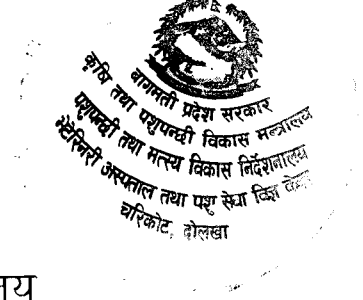 बागमती प्रदेश सरकार
कृषि तथा पशुपन्छी विकास मन्त्रालय
पशुपन्छी तथा मत्स्य विकास निर्देशनालय
भेटेरिनरी अस्पताल तथा पशु सेवा विज्ञ केन्द्र
चरिकोट, दोलखा